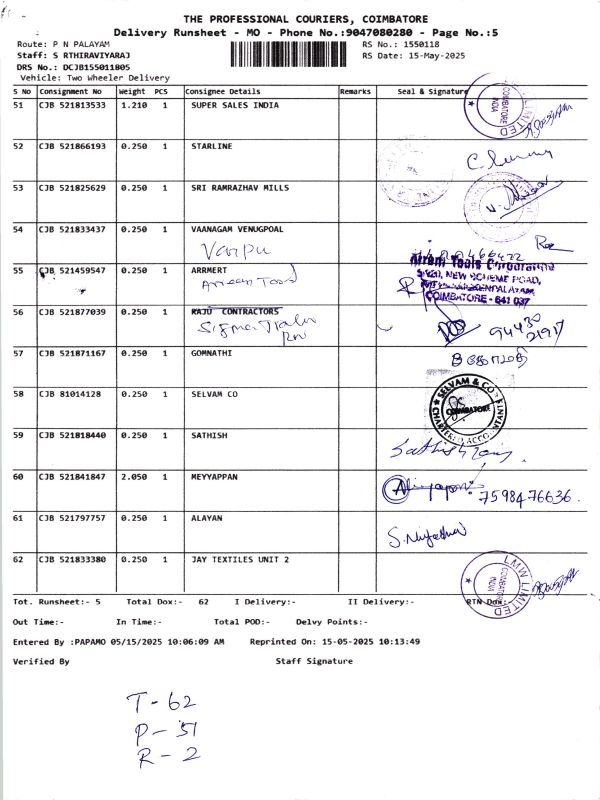 THE PROFESSIONAL COURIERS, COIMBATORE
Delivery Runsheet - MO - Phone No.:9047080280 - Page No.:5
Route: P N PALAYAM RS No.: 1550118
Staff: S RTHIRAVIYARAJ RS Date: 15-May-2025
DRS No.: DCJB155011805
Vehicle: Two Wheeler Delivery
S No Consignment No Weight PCS Consignee Details Remarks Seal & Signature
51 CJB 521813533 1.210 1 SUPER SALES INDIA
LIMITED COIMBATORE INDIA
52 CJB 521866193 0.250 1 STARLINE
53 CJB 521825629 0.250 1 SRI RAMRAZHAV MILLS
54 CJB 521833437 0.250 1 VAANAGAM VENUGPOAL
55 CJB 521459547 0.250 1 ARRMERT
Arram Tools Corporation
NEW SCHEME ROAD,
COIMBATORE - 641 037
56 CJB 521877039 0.250 1 RAJU CONTRACTORS
94430
21917
57 CJB 521871167 0.250 1 GOMNATHI
கோமதி
58 CJB 81014128 0.250 1 SELVAM CO
SELVAM & CO CHARTERED ACCOUNTANTS COIMBATORE
59 CJB 521818440 0.250 1 SATHISH
60 CJB 521841847 2.050 1 MEYYAPPAN
7598476636.
61 CJB 521797757 0.250 1 ALAYAN
62 CJB 521833380 0.250 1 JAY TEXTILES UNIT 2
LMW LIMITED COIMBATORE INDIA
Tot. Runsheet:- 5 Total Dox:- 62 I Delivery:- II Delivery:- RTN Dox:-
Out Time:- In Time:- Total POD:- Delvy Points:-
Entered By :PAPAMO 05/15/2025 10:06:09 AM Reprinted On: 15-05-2025 10:13:49
Verified By Staff Signature
T - 62
P - 51
R - 2